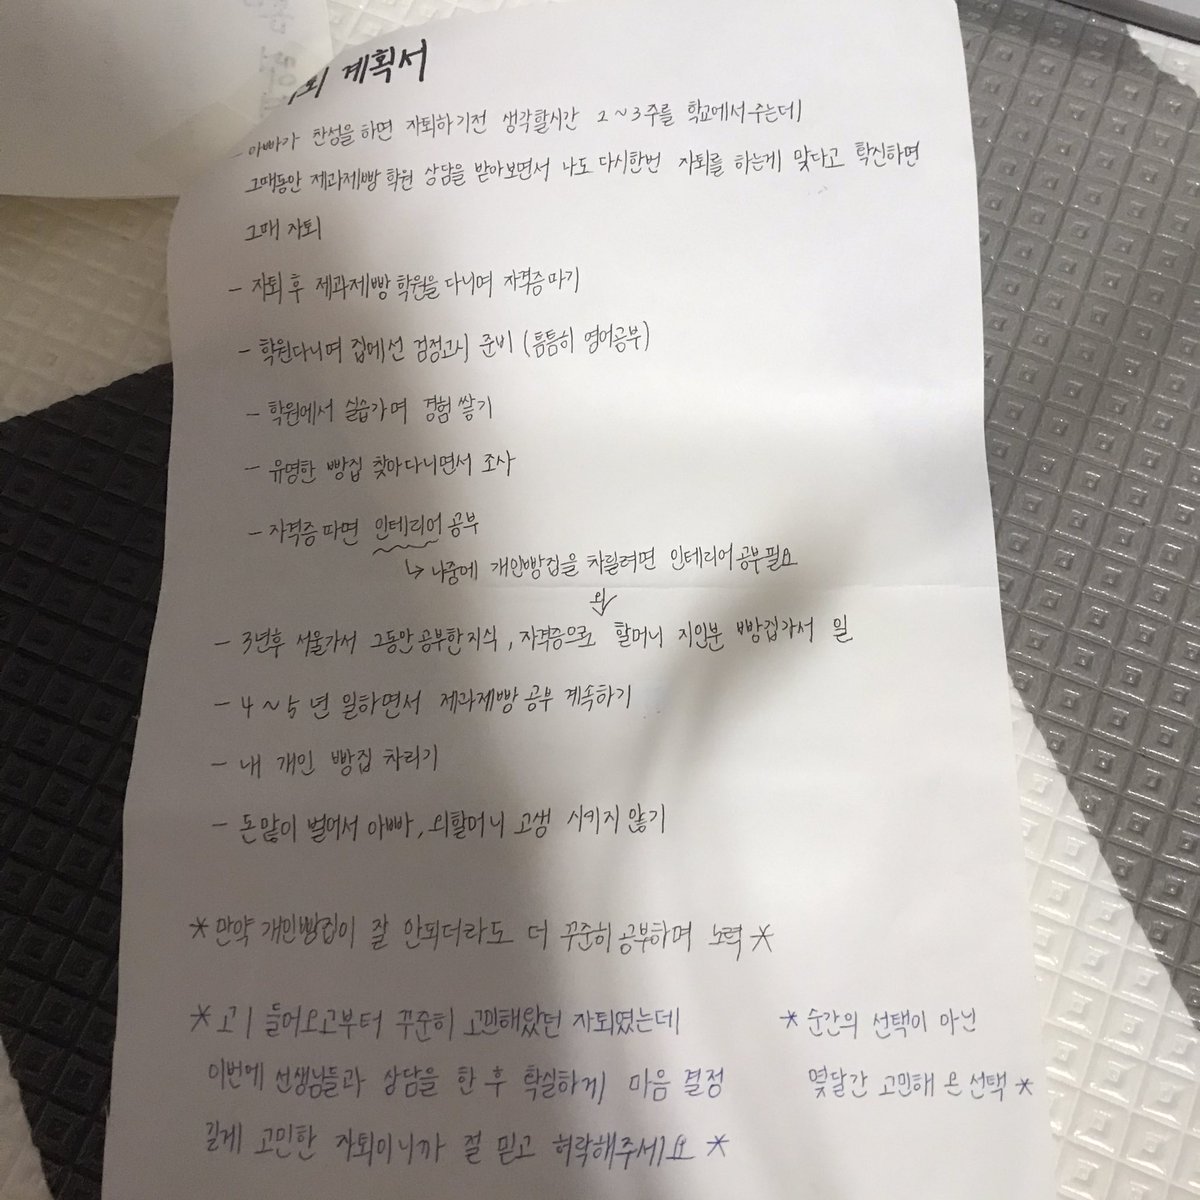 계획서
- 아빠가 찬성을 하면 자퇴하기전 생각할시간 2~3주를 학교에서 주는데
그때동안 제과제빵 학원 상담을 받아보면서 나도 다시한번 자퇴를 하는게 맞다고 확신하면
그때 자퇴
- 자퇴 후 제과제빵 학원을 다니며 자격증따기
- 학원다니며 집에선 검정고시 준비 (틈틈히 영어공부)
- 학원에서 실습가며 경험 쌓기
- 유명한 빵집 찾아다니면서 조사
- 자격증 따면 인테리어 공부
↳ 나중에 개인빵집을 차릴려면 인테리어 공부필요
외
- 3년후 서울가서 그동안 공부한 지식, 자격증으로 할머니 지인분 빵집가서 일
- 4~5년 일하면서 제과제빵 공부 계속하기
- 내 개인 빵집 차리기
- 돈많이 벌어서 아빠, 외할머니 고생 시키지 않기
* 만약 개인빵집이 잘 안되더라도 더 꾸준히 공부하며 노력 *
* 고1 들어오고부터 꾸준히 고민해왔던 자퇴였는데
이번에 선생님들과 상담을 한 후 확실하게 마음 결정
길게 고민한 자퇴이니까 절 믿고 허락해주세요 *
* 순간의 선택이 아닌
몇달간 고민해 온 선택 *